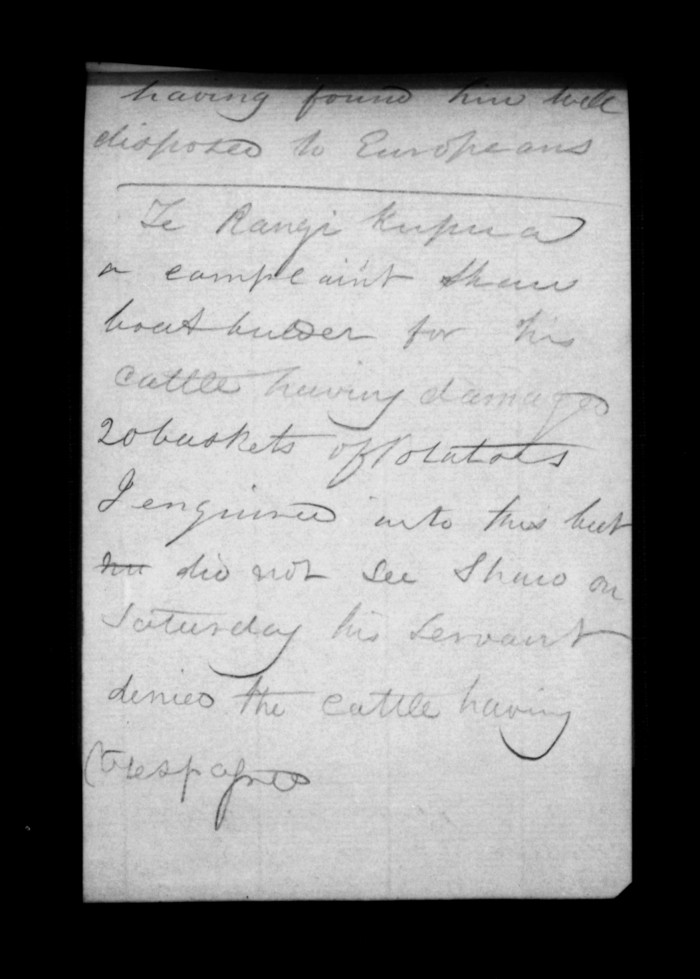 having found him well
disposed to Europeans
Te Rangi Kupua
a complaint Shaw
boat builder for his
Cattle having damaged
20 baskets of Potatoes
I enquired into this but
did not see Shaw on
Saturday his servant
denied the cattle having
trespassed